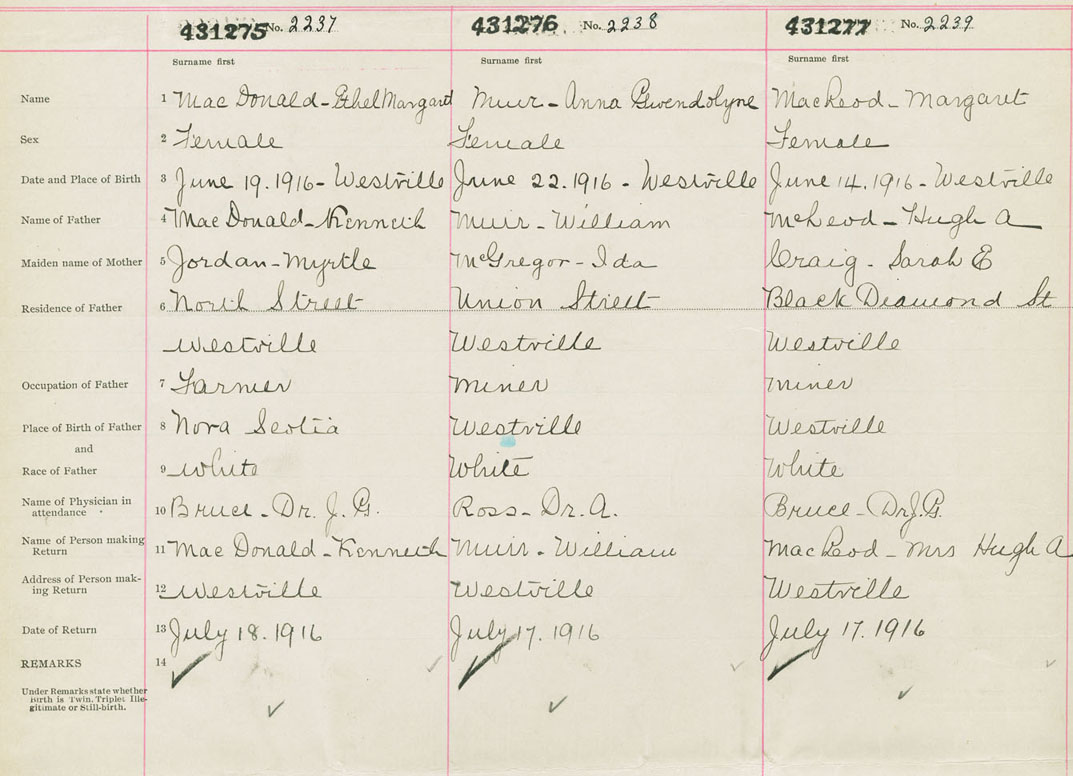 431275 No. 2237 431276 No. 2238 431277 No. 2239
Surname first Surname first Surname first
Name 1 MacDonald - Ethel Margaret Muir - Anna Gwendolyne MacLeod - Margaret
Sex 2 Female Female Female
Date and Place of Birth 3 June 19. 1916 - Westville June 22. 1916 - Westville June 14. 1916 - Westville
Name of Father 4 MacDonald - Kenneth Muir - William McLeod - Hugh A
Maiden name of Mother 5 Jordan - Myrtle McGregor - Ida Craig - Sarah E
Residence of Father 6 North Street Union Street Black Diamond St
Westville Westville Westville
Occupation of Father 7 Farmer Miner Miner
Place of Birth of Father 8 Nova Scotia Westville Westville
and
Race of Father 9 White White White
Name of Physician in
attendance 10 Bruce - Dr. J. G. Ross - Dr. A. Bruce - Dr J. G.
Name of Person making
Return 11 MacDonald - Kenneth Muir - William MacLeod - Mrs Hugh A
Address of Person mak-
ing Return 12 Westville Westville Westville
Date of Return 13 July 18. 1916 July 17. 1916 July 17. 1916
REMARKS 14
Under Remarks state whether
Birth is Twin, Triplet Ille-
gitimate or Still-birth.